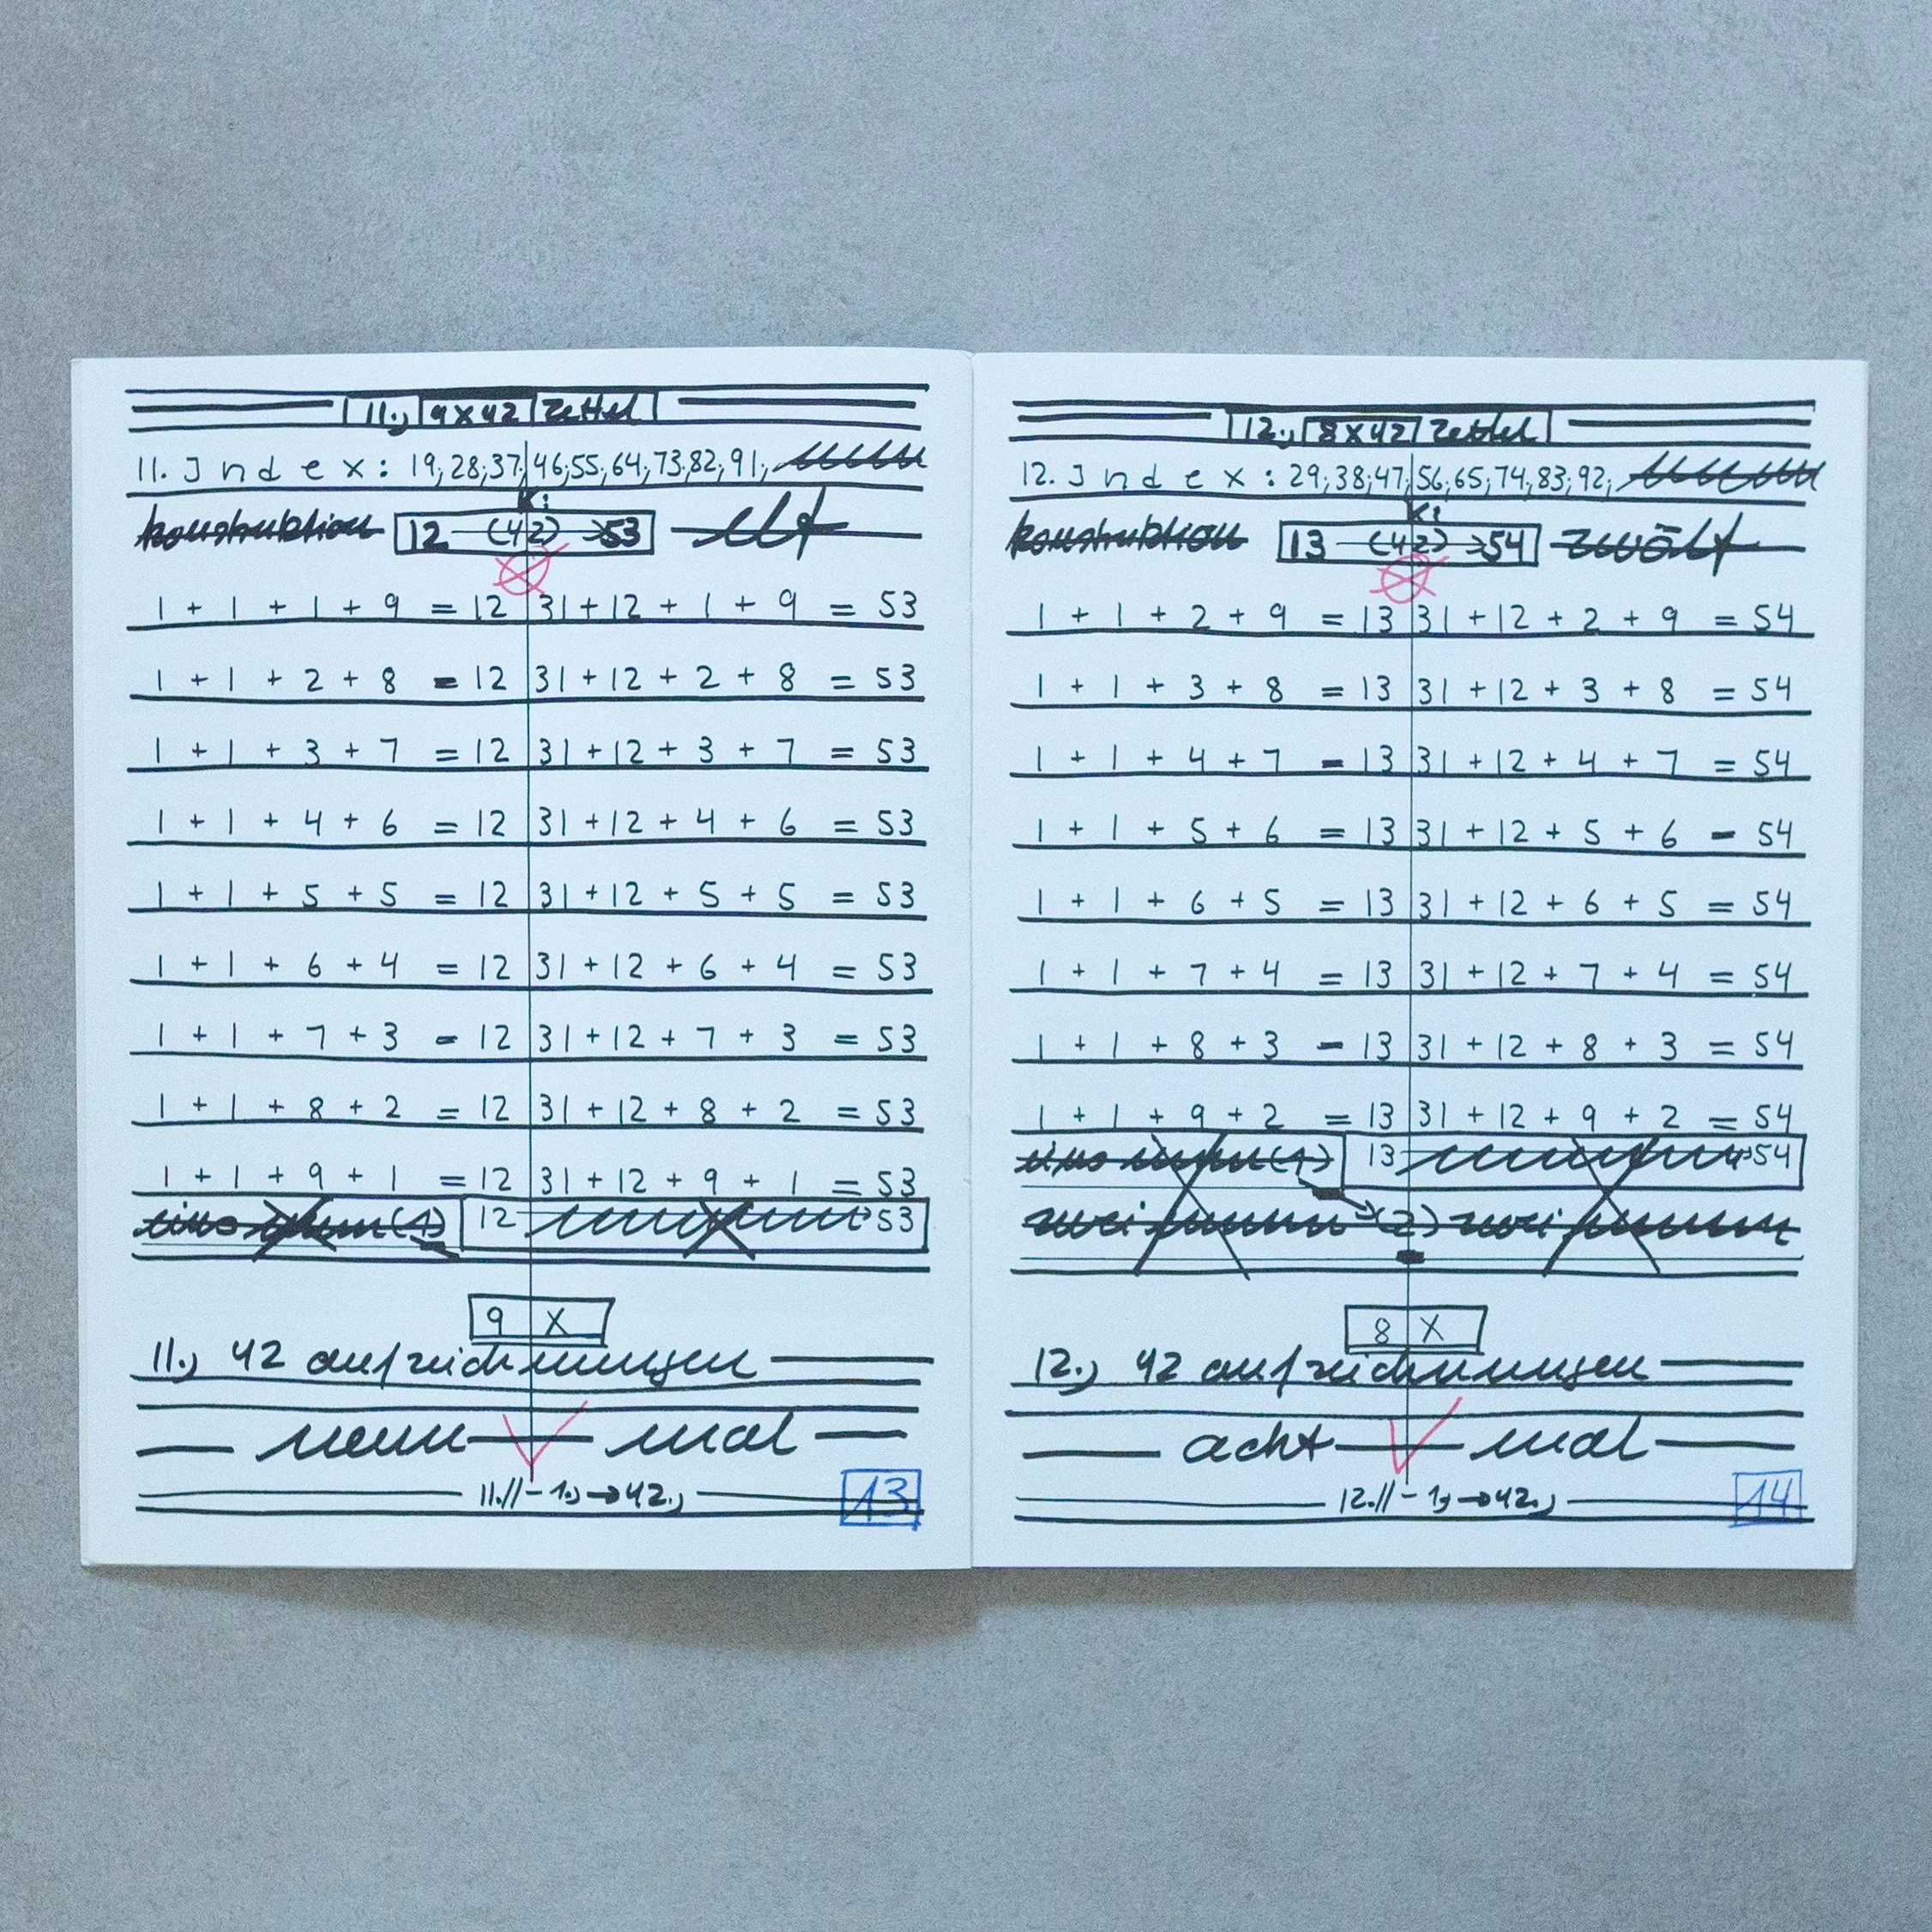 11., 9x42 Zettel
11. Index: 19, 28, 37, 46, 55, 64, 73, 82, 91,
K:
Konstruktion 12 — (42) → 53 elf
1 + 1 + 1 + 9 = 12 31 + 12 + 1 + 9 = 53
1 + 1 + 2 + 8 = 12 31 + 12 + 2 + 8 = 53
1 + 1 + 3 + 7 = 12 31 + 12 + 3 + 7 = 53
1 + 1 + 4 + 6 = 12 31 + 12 + 4 + 6 = 53
1 + 1 + 5 + 5 = 12 31 + 12 + 5 + 5 = 53
1 + 1 + 6 + 4 = 12 31 + 12 + 6 + 4 = 53
1 + 1 + 7 + 3 = 12 31 + 12 + 7 + 3 = 53
1 + 1 + 8 + 2 = 12 31 + 12 + 8 + 2 = 53
1 + 1 + 9 + 1 = 12 31 + 12 + 9 + 1 = 53
eins (1) 12 53
9 X
11., 42 aufzeichnungen
neun mal
11.// - 1., → 42.,
13
12., 8x42 Zettel
12. Index: 29, 38, 47, 56, 65, 74, 83, 92,
K:
Konstruktion 13 — (42) → 54 zwölf
1 + 1 + 2 + 9 = 13 31 + 12 + 2 + 9 = 54
1 + 1 + 3 + 8 = 13 31 + 12 + 3 + 8 = 54
1 + 1 + 4 + 7 = 13 31 + 12 + 4 + 7 = 54
1 + 1 + 5 + 6 = 13 31 + 12 + 5 + 6 = 54
1 + 1 + 6 + 5 = 13 31 + 12 + 6 + 5 = 54
1 + 1 + 7 + 4 = 13 31 + 12 + 7 + 4 = 54
1 + 1 + 8 + 3 = 13 31 + 12 + 8 + 3 = 54
1 + 1 + 9 + 2 = 13 31 + 12 + 9 + 2 = 54
eins (1) 13 54
zwei (2) zwei
8 X
12., 42 aufzeichnungen
acht mal
12.// - 1., → 42.,
14